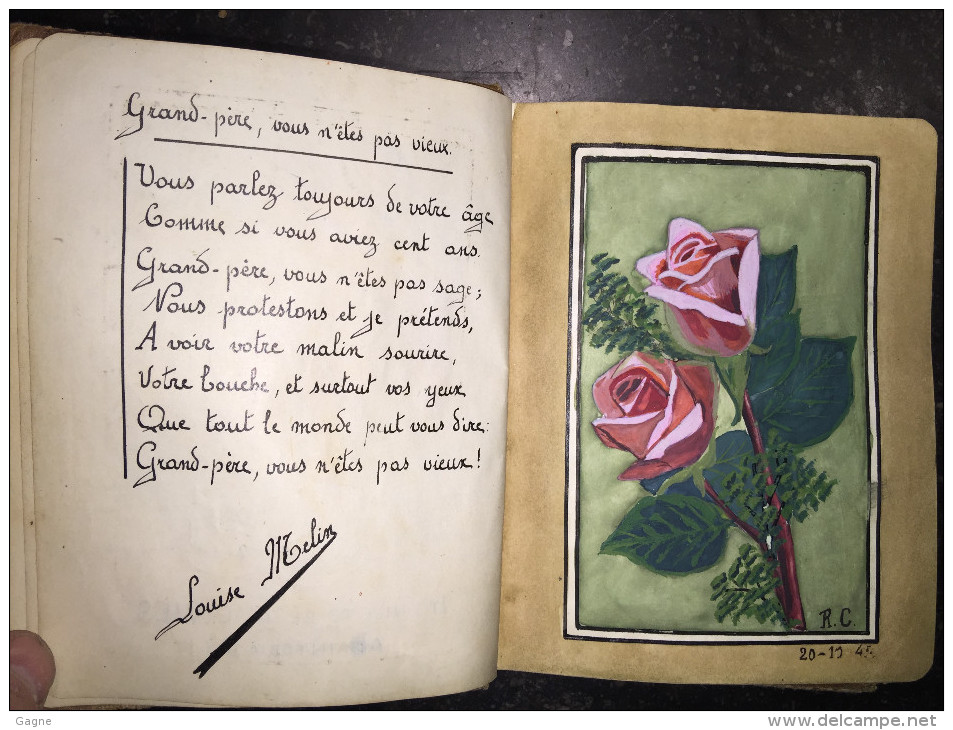 Grand-père, vous n'êtes pas vieux.
Vous parlez toujours de votre âge
Comme si vous aviez cent ans.
Grand-père, vous n'êtes pas sage;
Nous protestons et je prétends,
A voir votre malin sourire,
Votre bouche, et surtout vos yeux
Que tout le monde peut vous dire:
Grand-père, vous n'êtes pas vieux!
Louise Melin
R.C.
Gagne
www.delcampe.net